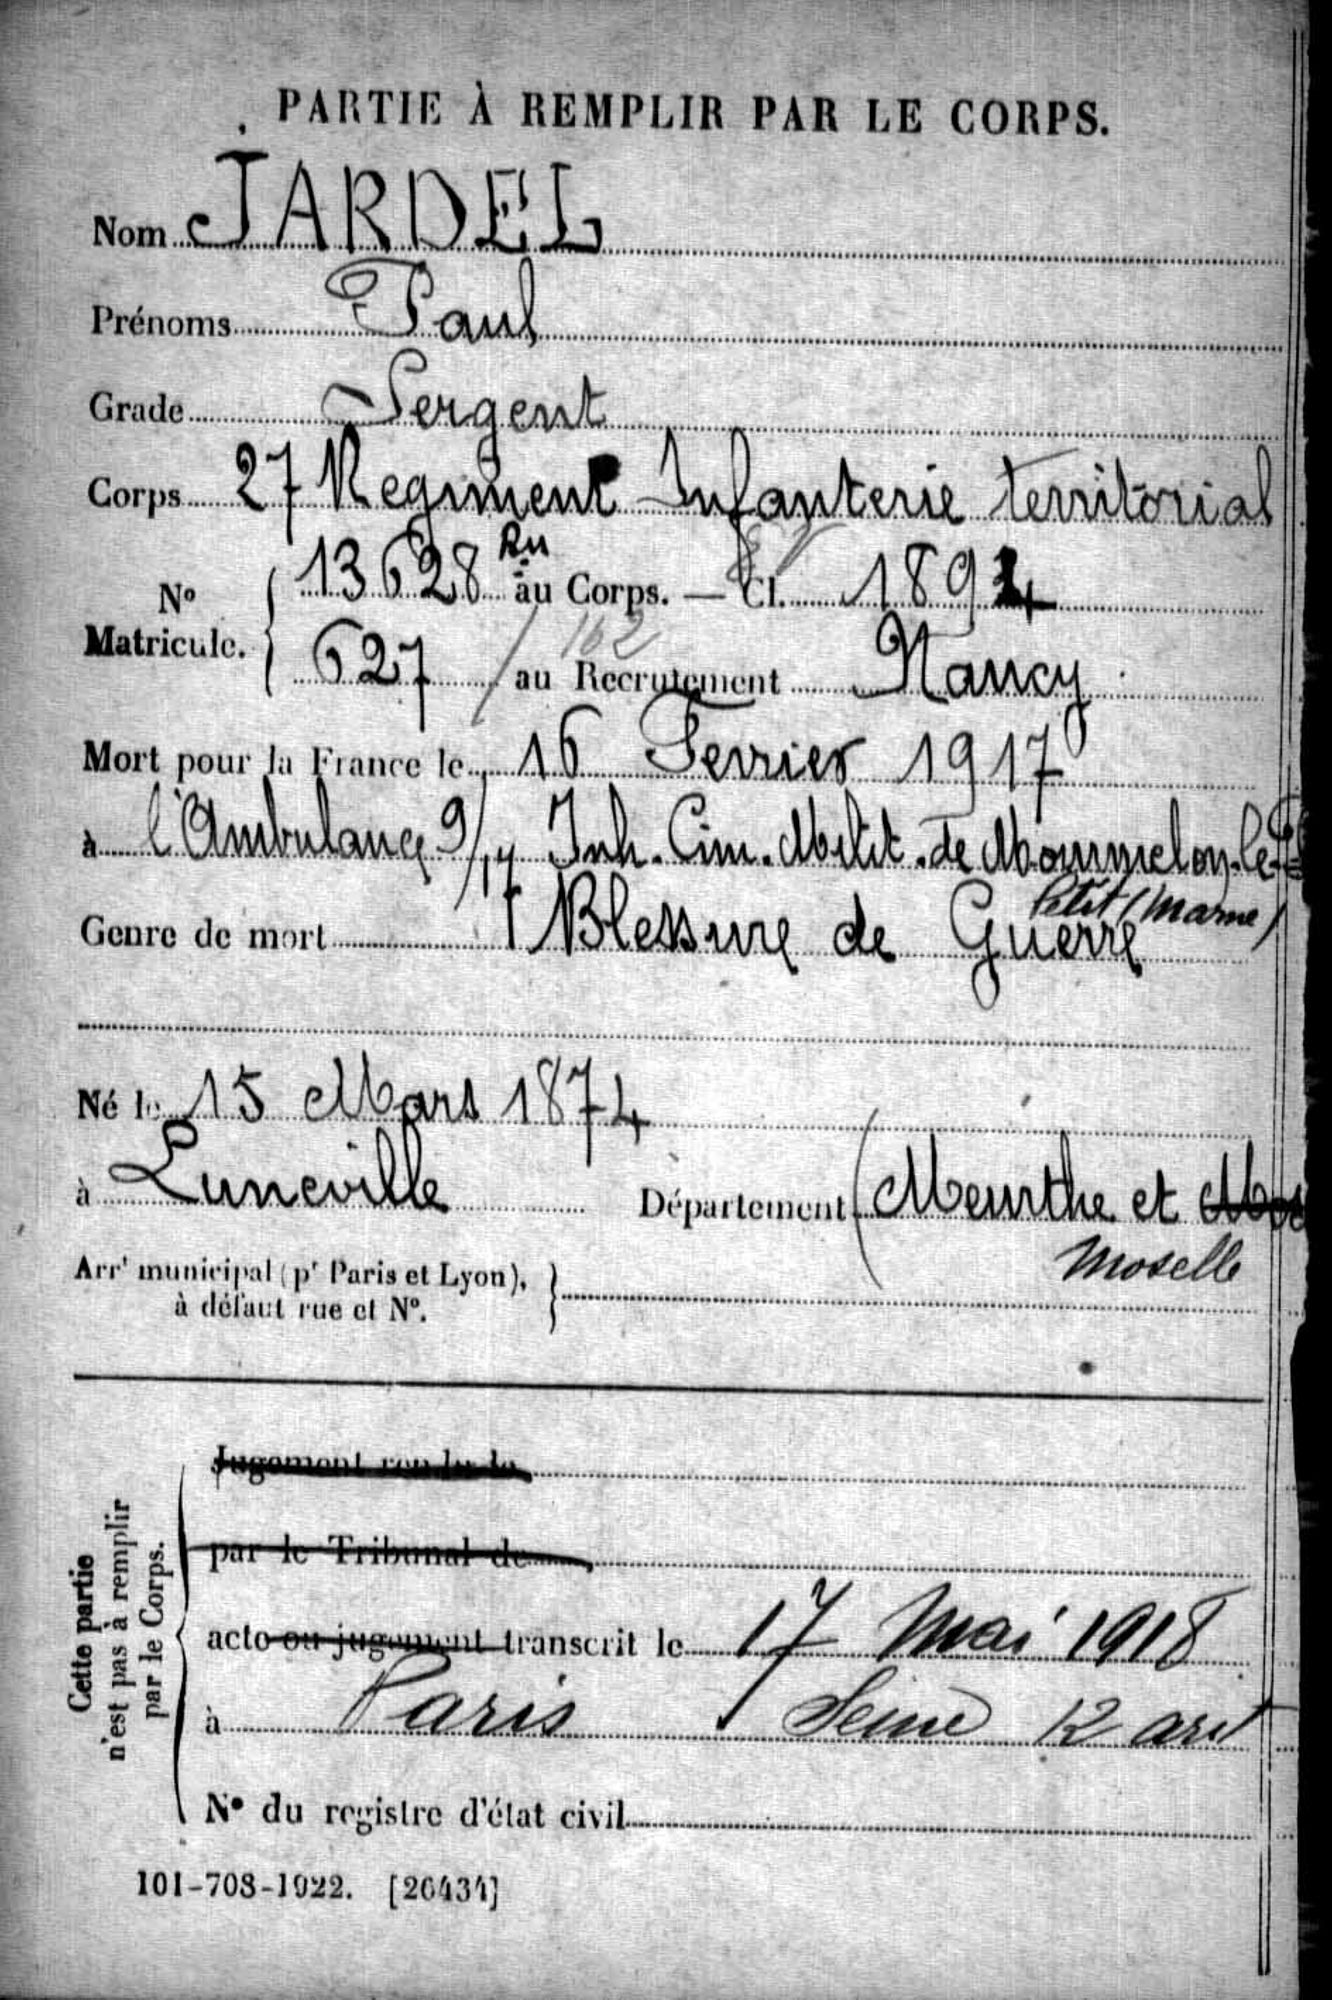 PARTIE À REMPLIR PAR LE CORPS.
Nom JARDEL
Prénoms Paul
Grade Sergent
Corps 27 Regiment Infanterie territorial
N° Matricule. 13628 au Corps. — Cl. 1894
627 / 162 au Recrutement Nancy
Mort pour la France le 16 Fevrier 1917
à l'Ambulance 9/17 Inh. Cim. Milit. de Mourmelon-le-
Petit (Marne)
Genre de mort Blessure de Guerre
Né le 15 Mars 1874
à Luneville Département (Meurthe et Mos
Moselle
Arrt municipal (pr Paris et Lyon),
à défaut rue et N°.
Cette partie
n'est pas à remplir
par le Corps.
Jugement rendu le
par le Tribunal de
acte ou jugement transcrit le 17 Mai 1918
à Paris Seine 12 arrt
N° du registre d'état civil
101-708-1922. [26434]